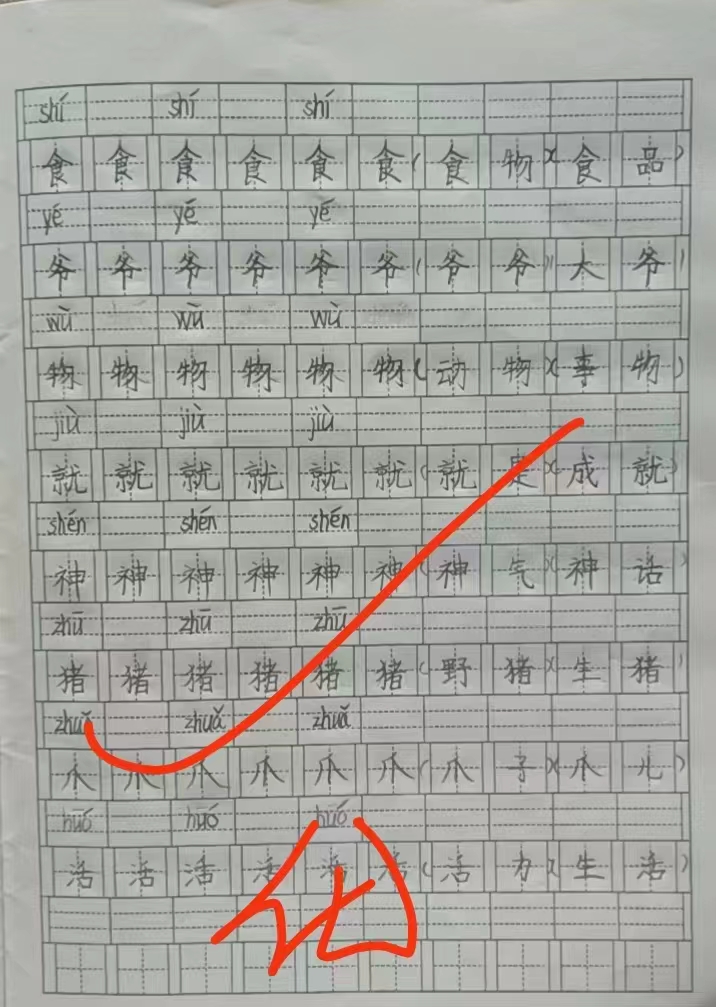 shí shí shí
食 食 食 食 食 食（食 物）（食 品）
yé yé yé
爷 爷 爷 爷 爷 爷（爷 爷）（大 爷）
wù wù wù
物 物 物 物 物 物（动 物）（事 物）
jiù jiù jiù
就 就 就 就 就 就（就 是）（成 就）
shén shén shén
神 神 神 神 神 神（神 气）（神 话）
zhū zhū zhū
猪 猪 猪 猪 猪 猪（野 猪）（生 猪）
zhuǎ zhuǎ zhuǎ
爪 爪 爪 爪 爪 爪（爪 子）（爪 儿）
huó huó huó
活 活 活 活 活 活（活 力）（生 活）
优